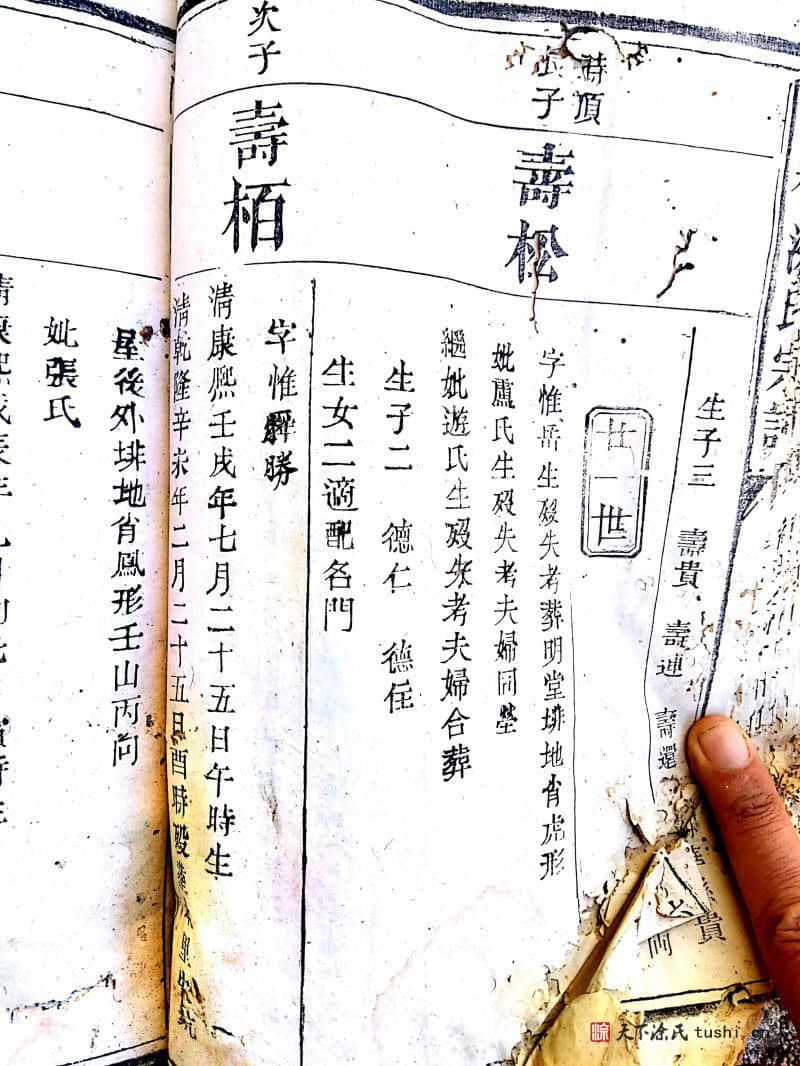 氏宗譜
生子三 壽貴 壽連 壽還
廿一世
時頂
子
壽松
字惟岳生殁失考葬明堂排地肖虎形
妣萬氏生殁失考夫婦同塋
繼妣遊氏生殁失考夫婦合葬
生子二 德仁 德任
生女二適配各門
次子
壽栢
字惟勝
清康熙壬戌年七月二十五日午時生
清乾隆辛未年二月二十五日酉時殁葬
里
屋後外排地肖鳳形壬山丙向
妣張氏
清康熙
年九月
時生
貴
天下涂氏 tushi.cn